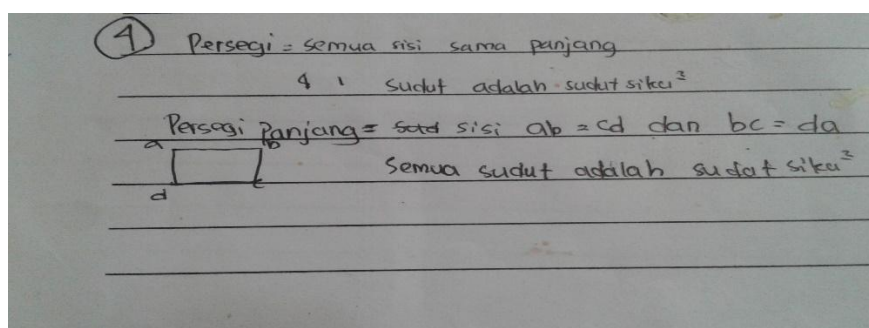 4 Persegi = semua sisi sama panjang
4 , sudut adalah sudut siku²
Persegi Panjang = sisi ab = cd dan bc = da
a b
Semua sudut adalah sudat siku²
d c